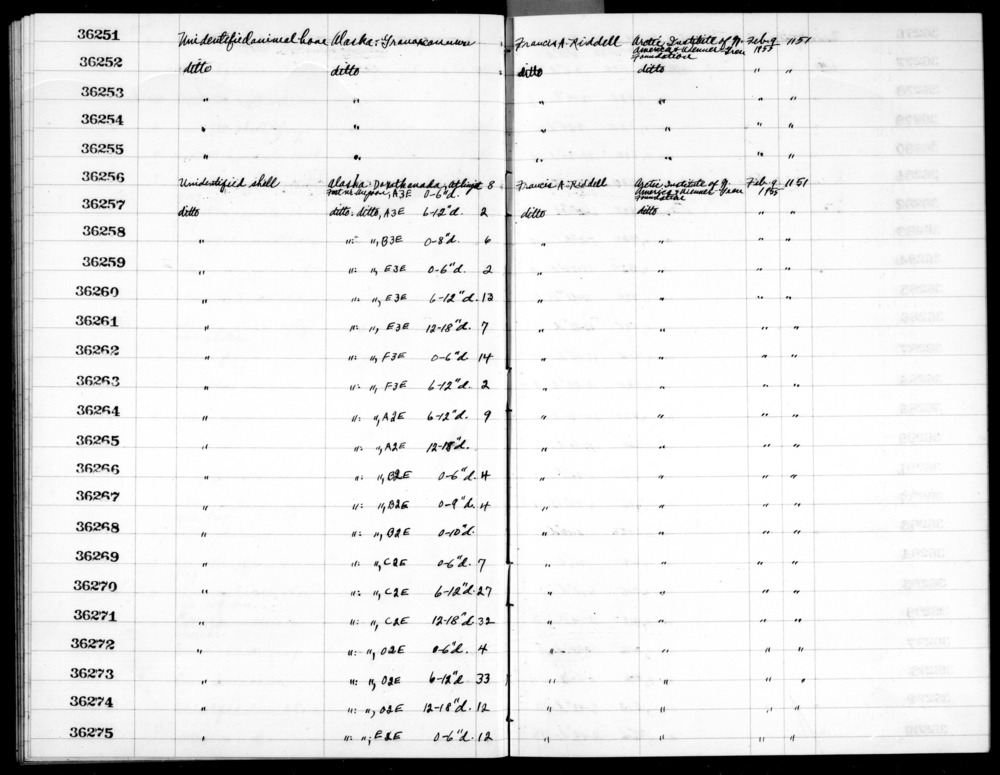 36251 Unidentified animal bone Alaska: Francis A. Riddell Arctic Institute of N. America & Wenner-Gren Foundation Feb. 9 1955 1151
36252 ditto ditto ditto ditto " "
36253 " " " " " "
36254 " " " " " "
36255 " " " " " "
36256 Unidentified shell Alaska: A3E 0-6"d. 8 Francis A. Riddell Arctic Institute of N. America & Wenner-Gren Foundation Feb. 9 1955 1151
36257 ditto ditto: ditto, A3E 6-12"d. 2 ditto ditto " "
36258 " ": ", B3E 0-8"d. 6 " " " "
36259 " ": ", E3E 0-6"d. 2 " " " "
36260 " ": ", E3E 6-12"d. 13 " " " "
36261 " ": ", E3E 12-18"d. 7 " " " "
36262 " ": ", F3E 0-6"d. 14 " " " "
36263 " ": ", F3E 6-12"d. 2 " " " "
36264 " ": ", A2E 6-12"d. 9 " " " "
36265 " ": ", A2E 12-18"d. " " " "
36266 " ": ", B2E 0-6"d. 4 " " " "
36267 " ": ", B2E 0-9"d. 4 " " " "
36268 " ": ", B2E 0-10"d. " " " "
36269 " ": ", C2E 0-6"d. 7 " " " "
36270 " ": ", C2E 6-12"d. 27 " " " "
36271 " ": ", C2E 12-18"d. 32 " " " "
36272 " ": ", D2E 0-6"d. 4 " " " "
36273 " ": ", D2E 6-12"d 33 " " " "
36274 " ": ", D2E 12-18"d. 12 " " " "
36275 " ": ", E2E 0-6"d. 12 " " " "